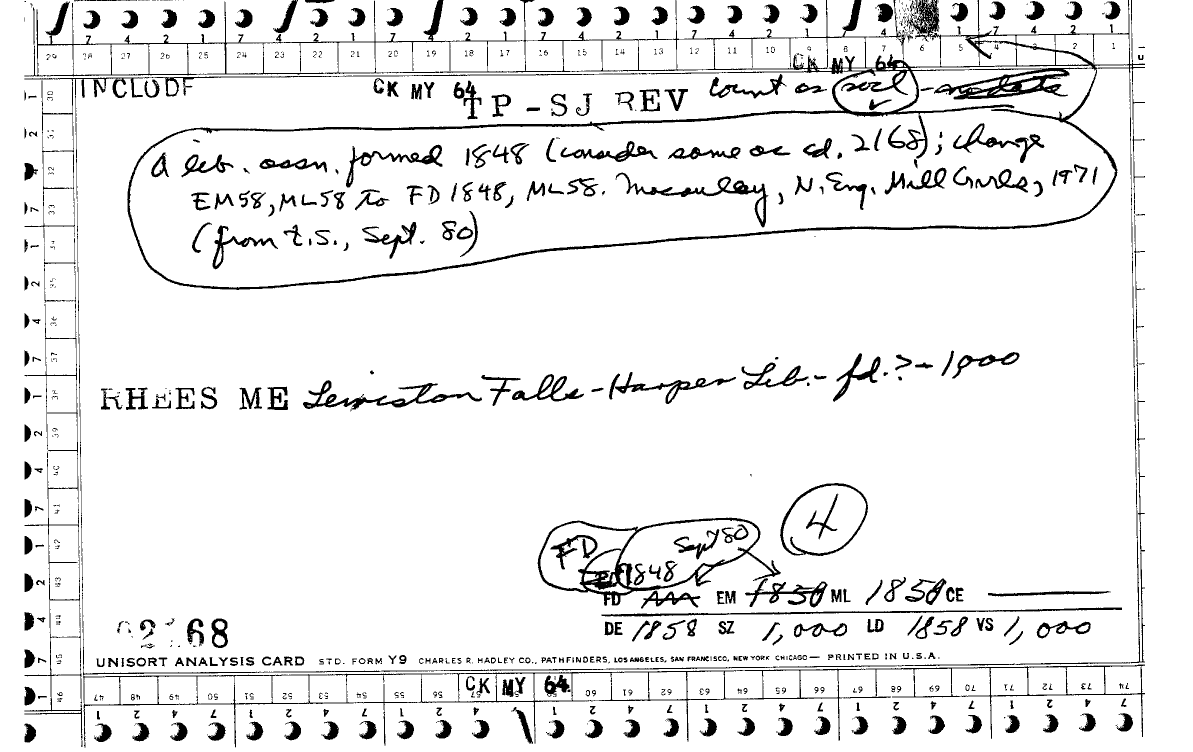 7 4 2 1 7 4 2 1 7 4 2 1 7 4 2 1 7 4 2 1 7 4 1 7 4 2 1
29 28 27 26 25 24 23 22 21 20 19 18 17 16 15 14 13 12 11 10 9 8 7 6 5 4 3 2 1
CK MY 64
INCLUDE CK MY 64 TP-SJ REV Count as socl -
A lib. assn. formed 1848 (consider same as cd. 2168); change
EM58, ML58 to FD 1848, ML58. Macauley, N. Eng. Mill Girls, 1971
(from Z.S., Sept. 80)
RHEES ME Lewiston Falls - Harper Lib. - fd.? - 1000
4
FD Sept 80
1848
FD EM 1858 ML 1858 CE
DE 1858 SZ 1,000 LD 1858 VS 1,000
02168
UNISORT ANALYSIS CARD STD. FORM Y9 CHARLES R. HADLEY CO., PATHFINDERS, LOS ANGELES, SAN FRANCISCO, NEW YORK CHICAGO — PRINTED IN U.S.A.
CK MY 64
47 48 49 50 51 52 53 54 55 56 57 60 61 62 63 64 65 66 67 68 69 70 71 72 73 74
1 2 4 7 1 2 4 7 1 2 4 7 1 2 4 7 1 2 4 7 1 2 4 7 1 2 4 7